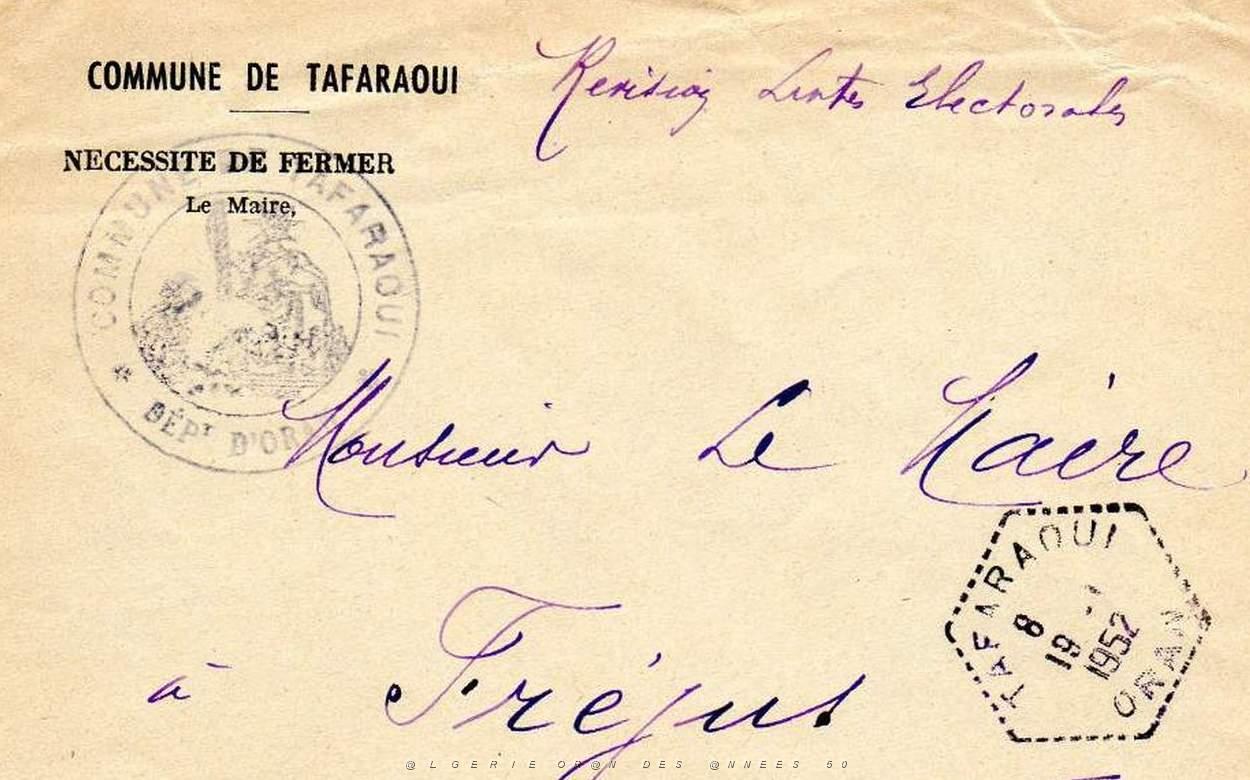 COMMUNE DE TAFARAOUI
Revision Listes Electorales
NECESSITE DE FERMER
Le Maire,
COMMUNE DE TAFARAOUI
* DÉPT D'ORAN
Monsieur Le Maire
à Fréjus
TAFARAOUI
8
19 -1
1952
ORAN
@LGERIE OR@N DES @NNEES 50